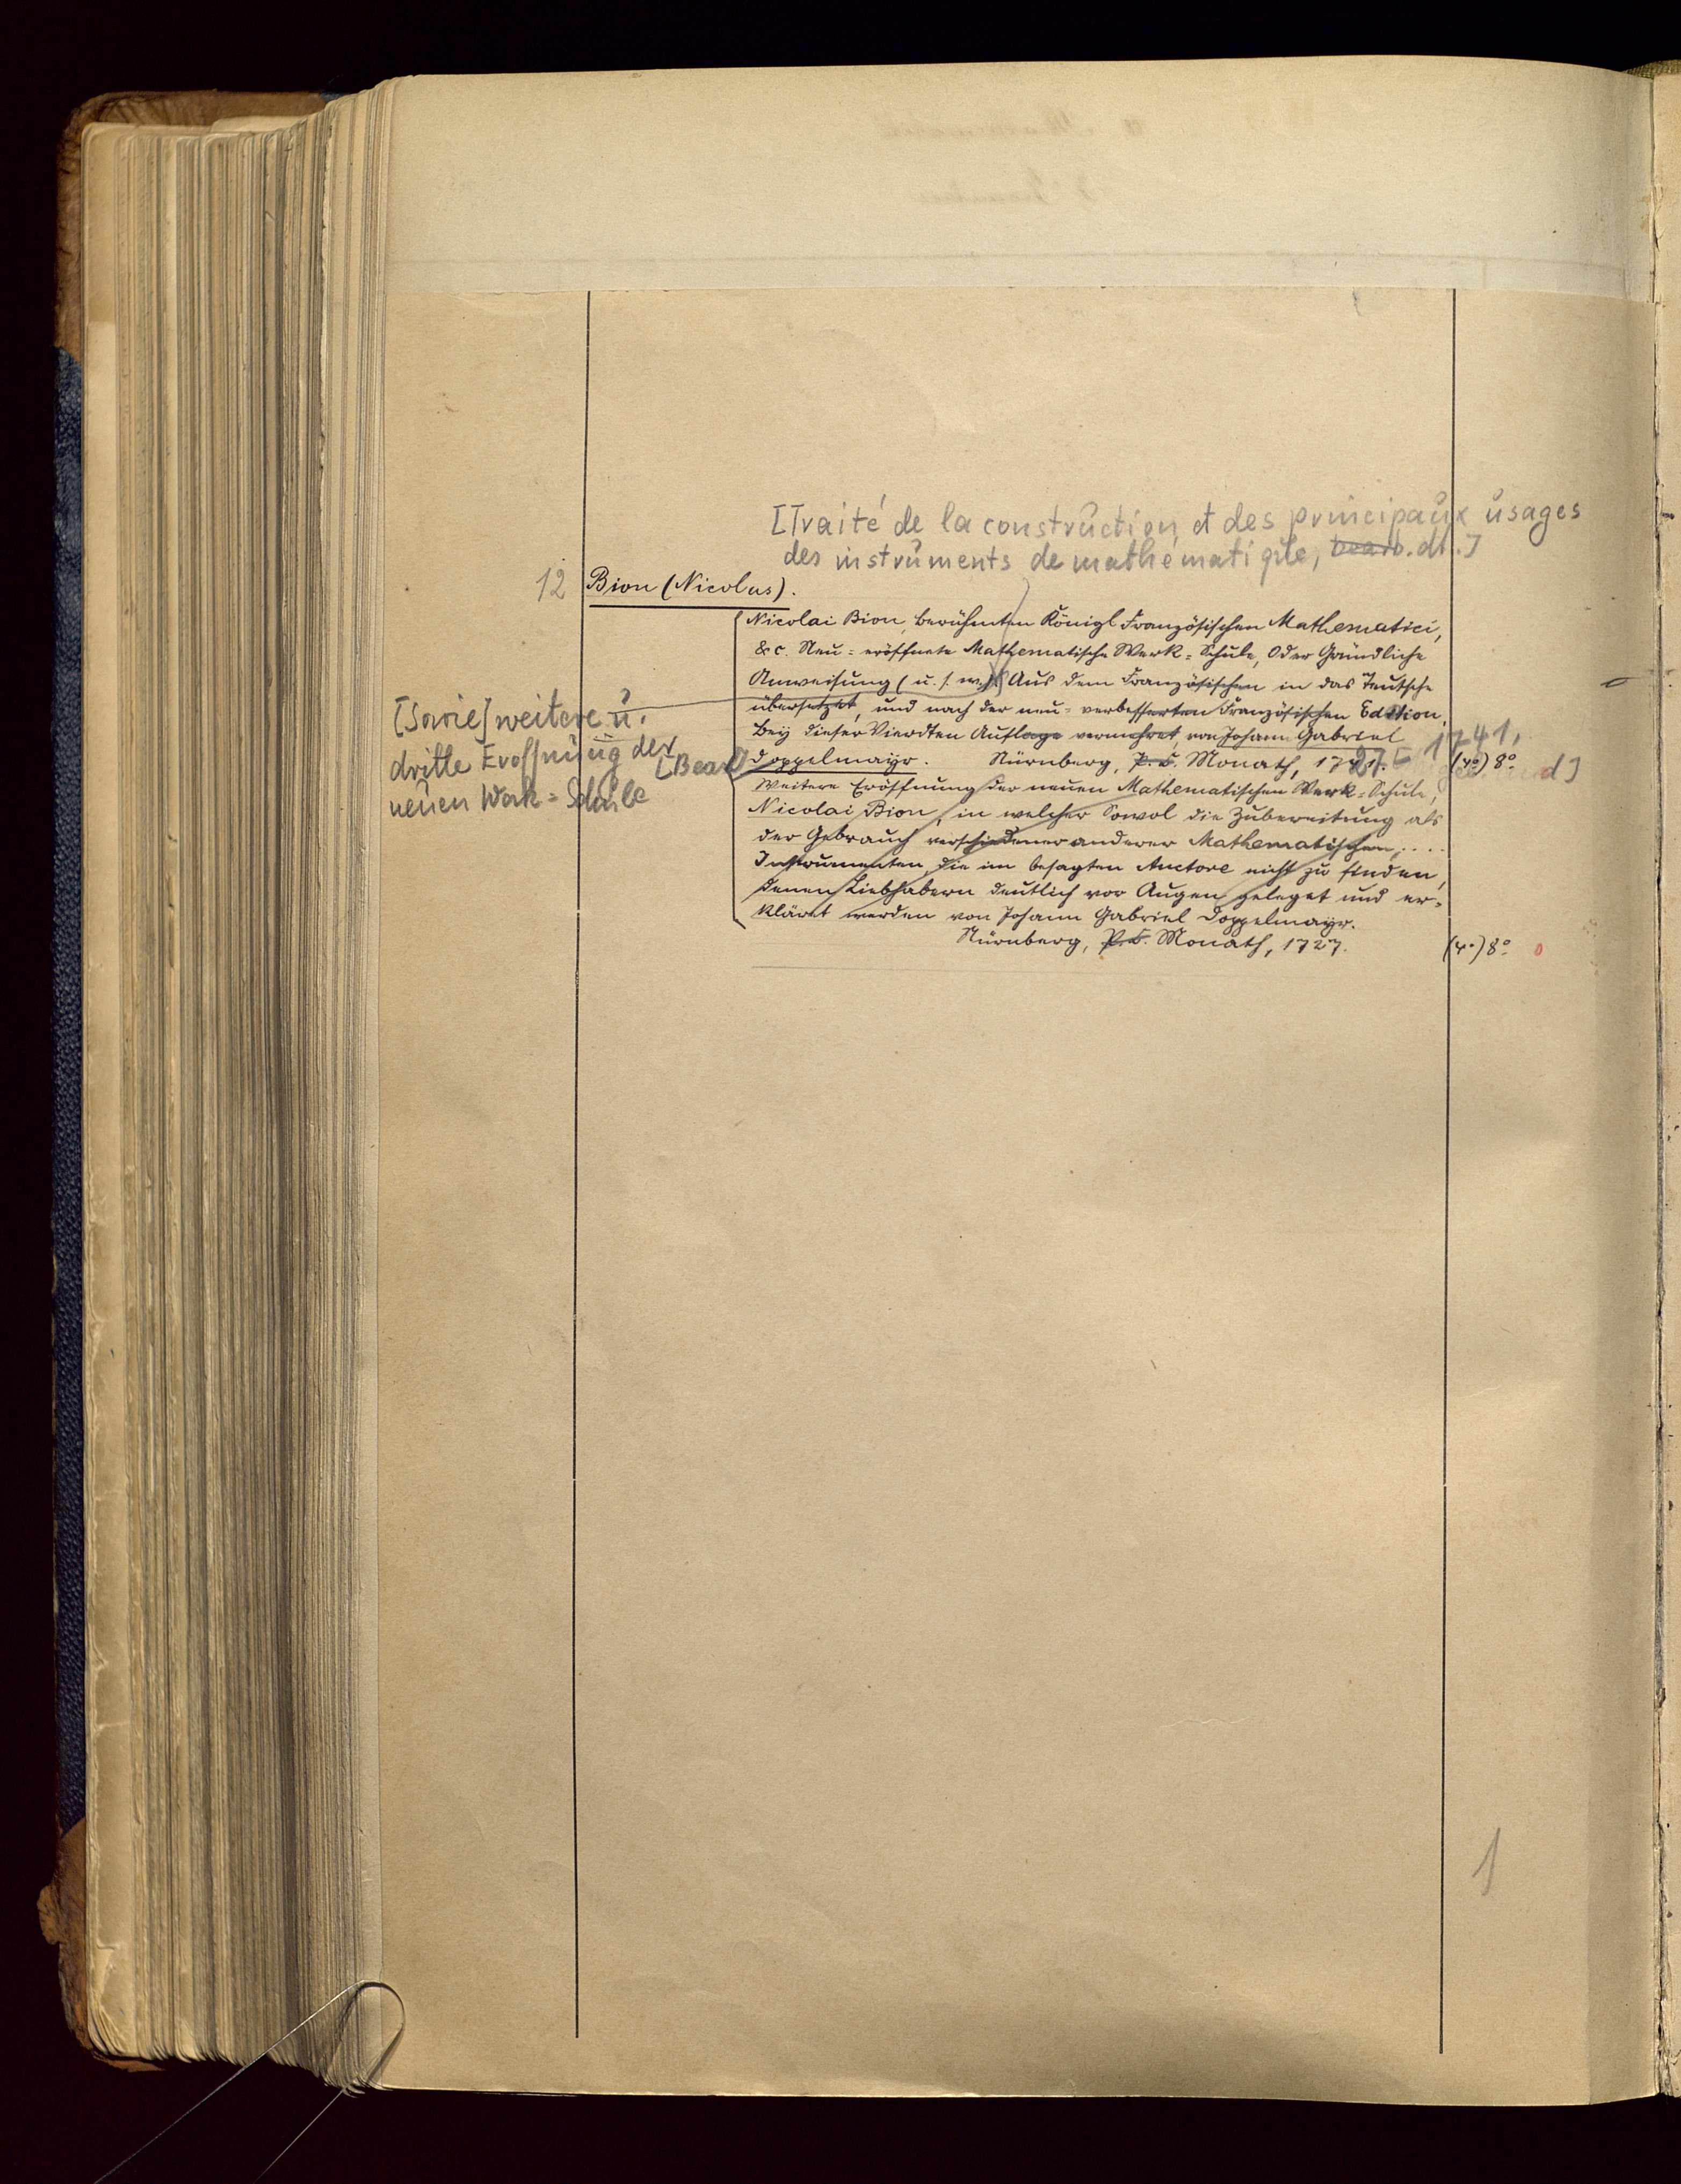 [Traité de la construction et des principaux usages
des instruments de mathématique, bearb. dt.]
12 Bion (Nicolus).
Nicolai Bion, berühmten Königl Französischen Mathematici,
&c. Neu=eröffnete Mathematische Werk=Schule, Oder Gründliche
Anweisung (u. s. w.) Aus dem Französischen in das Teutsche
übersetzet, und nach der neu=verbesserten Französischen Edition,
Bey dieser Vierdten Auflage vermehret, von Johann Gabriel
Doppelmayr. Nürnberg, P. C. Monath, 1741, (4°) 8°
[sowie] weitere u.
dritte Eröffnung der
neuen Werk=Schule
[Bearb.
Weitere Eröffnung der neuen Mathematischen Werk=Schule,
Nicolai Bion, in welcher Sowol die Zubereitung als
der Gebrauch verschiedener anderer Mathematischen, ....
Instrumenten, die im besagten Auctore nicht zu finden,
denen Liebhabern deutlich vor Augen geleget und er=
kläret werden von Johann Gabriel Doppelmayr.
Nürnberg, P. C. Monath, 1727. (4°) 8°
1